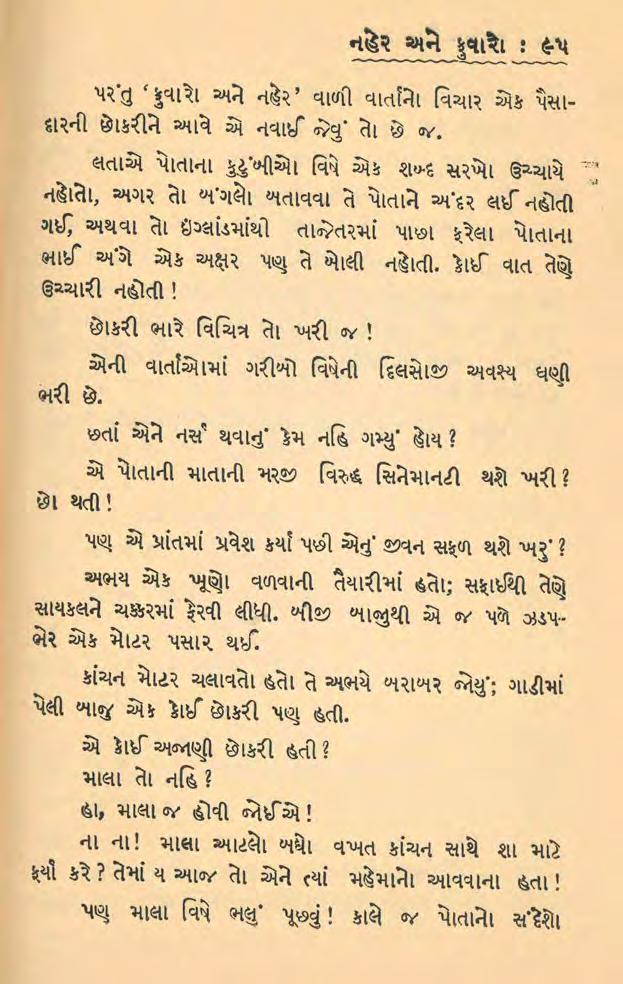 નહેર અને ફુવારો : ૯૫
પરંતુ ‘ફુવારો અને નહેર’ વાળી વાર્તાનો વિચાર એક પૈસા-
દારની છોકરીને આવે એ નવાઈ જેવું તો છે જ.
લતાએ પોતાના કુટુંબીઓ વિષે એક શબ્દ સરખો ઉચ્ચાર્યો
નહોતો, અગર તો બંગલો બતાવવા તે પોતાને અંદર લઈ નહોતી
ગઈ, અથવા તો ઇંગ્લાંડમાંથી તાજેતરમાં પાછા ફરેલા પોતાના
ભાઈ અંગે એક અક્ષર પણ તે બોલી નહોતી. કોઈ વાત તેણે
ઉચ્ચારી નહોતી !
છોકરી ભારે વિચિત્ર તો ખરી જ !
એની વાર્તાઓમાં ગરીબો વિષેની દિલસોજી અવશ્ય ઘણી
ભરી છે.
છતાં એને નર્સ થવાનું કેમ નહિ ગમ્યું હોય ?
એ પોતાની માતાની મરજી વિરુદ્ધ સિનેમાનટી થશે ખરી ?
છો થતી !
પણ એ પ્રાંતમાં પ્રવેશ કર્યા પછી એનું જીવન સફળ થશે ખરું ?
અભય એક ખૂણો વળવાની તૈયારીમાં હતો; સફાઈથી તેણે
સાયકલને ચક્કરમાં ફેરવી લીધી. બીજી બાજુથી એ જ પળે ઝડપ-
ભેર એક મોટર પસાર થઈ.
કાંચન મોટર ચલાવતો હતો તે અભયે બરાબર જોયું; ગાડીમાં
પેલી બાજુ એક કોઈ છોકરી પણ હતી.
એ કોઈ અજાણી છોકરી હતી ?
માલા તો નહિ ?
હા, માલા જ હોવી જોઈએ !
ના ના! માલા આટલો બધો વખત કાંચન સાથે શા માટે
ફર્યા કરે ? તેમાં ય આજ તો એને ત્યાં મહેમાનો આવવાના હતા !
પણ માલા વિષે ભલું પૂછવું ! કાલે જ પોતાનો સંદેશો